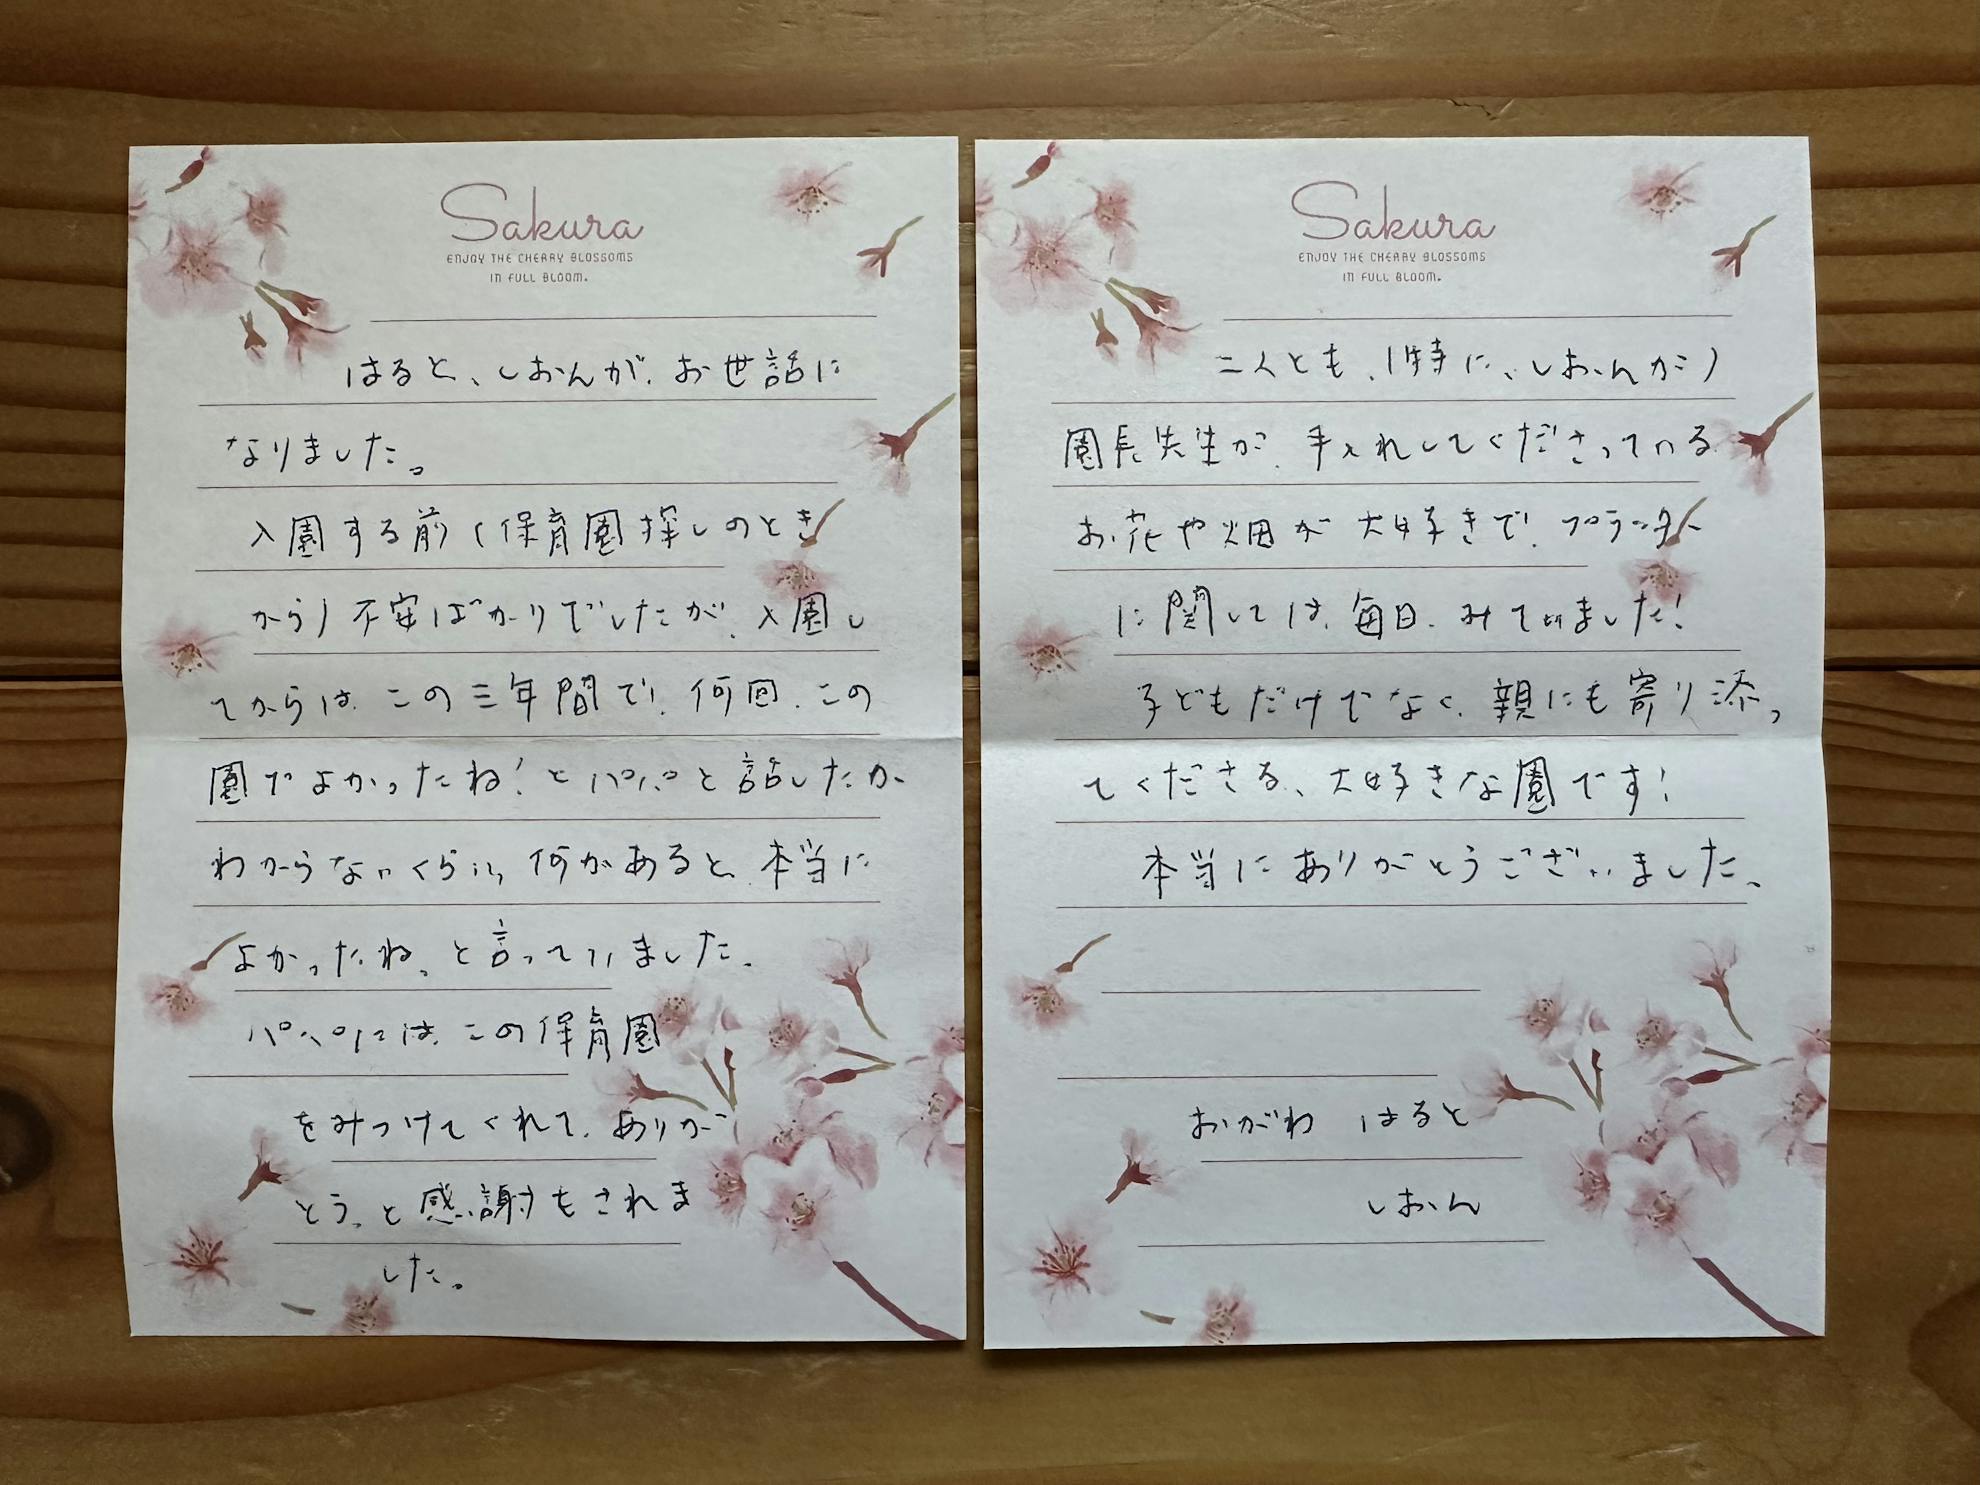 Sakura
ENJOY THE CHERRY BLOSSOMS
IN FULL BLOOM.
はると、しおんが、お世話に
なりました。
入園する前(保育園探しのとき
から)不安ばかりでしたが、入園し
てからは、この三年間で、何回、この
園でよかったね!とパパと話したか
わからないくらい、何かあると、本当に
よかったね。と言っていました。
パパには、この保育園
をみつけてくれて、ありが
とう。と感謝もされま
した。
Sakura
ENJOY THE CHERRY BLOSSOMS
IN FULL BLOOM.
二人とも、(特に、しおんが)
園長先生が、手入れしてくださっている
お花や畑が大好きで、プランター
に関しては、毎日、みていました!
子どもだけでなく、親にも寄り添っ
てくださる、大好きな園です!
本当にありがとうございました。
おがわ はると
しおん